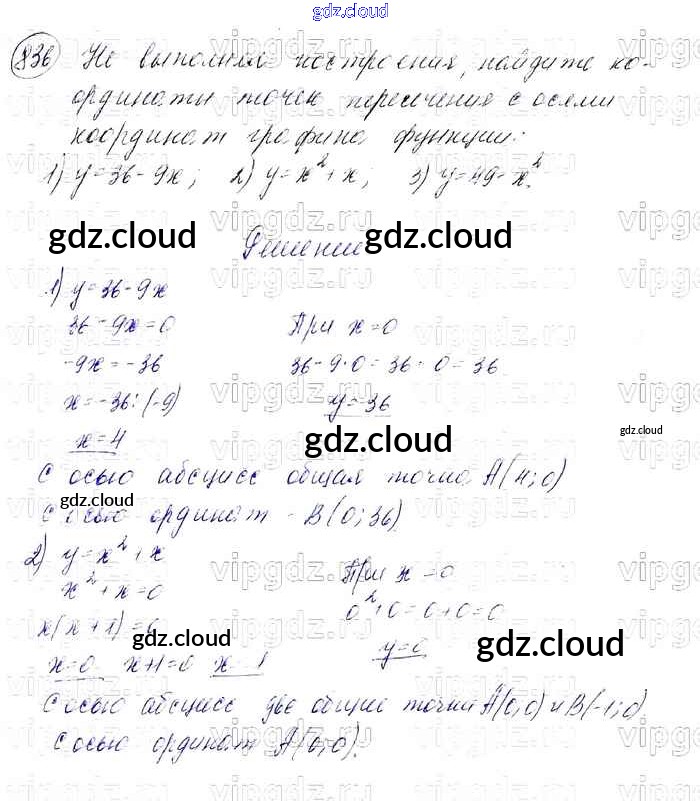 gdz.cloud
836 Не выполняя построения, найдите ко-
ординаты точек пересечения с осями
координат графика функции:
1) y=36-9x; 2) y=x²+x; 3) y=49-x².
gdz.cloud Решение gdz.cloud
1) y=36-9x
36-9x=0 При x=0
-9x=-36 36-9·0=36-0=36
x=-36:(-9) y=36
x=4 gdz.cloud gdz.cloud
С осью абсцисс общая точка A(4;0)
gdz.cloud
С осью ординат - B(0;36)
2) y=x²+x
x²+x=0 При x=0
x(x+1)=0 0²+0=0+0=0
gdz.cloud gdz.cloud
x=0 x+1=0 x=-1 y=0
С осью абсцисс две общие точки A(0;0) и B(-1;0)
С осью ординат A(0;0).